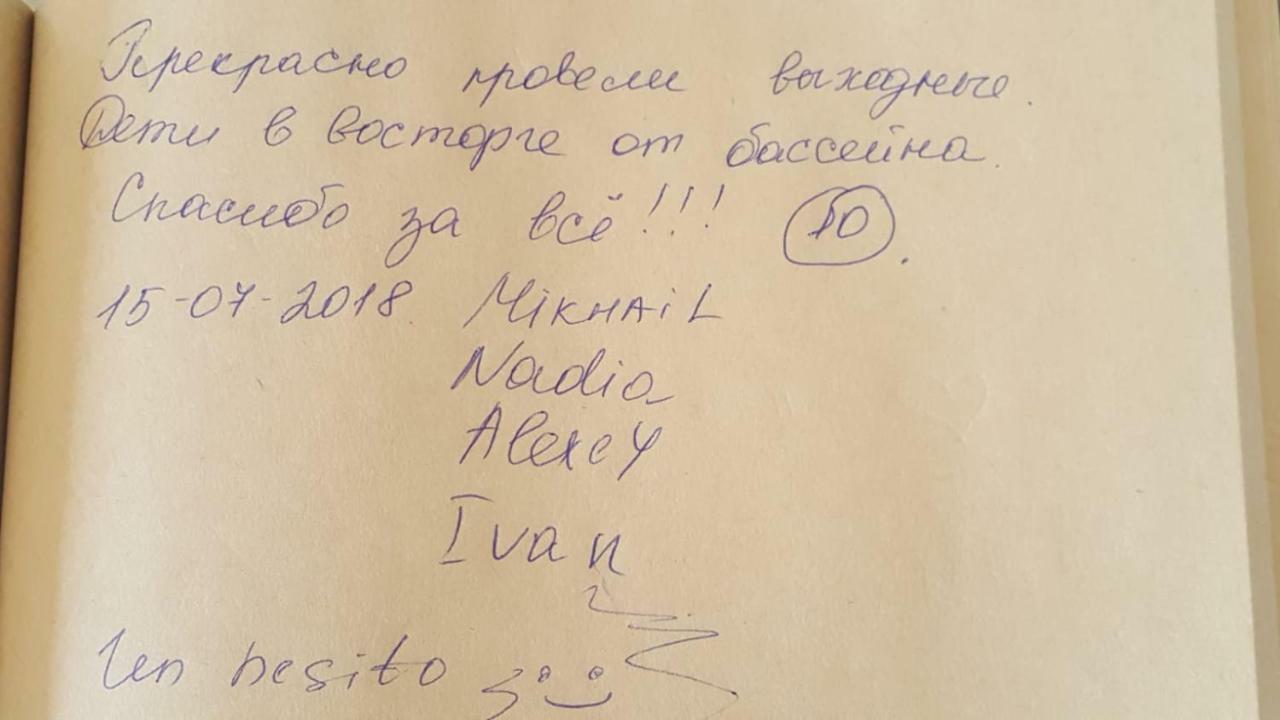 Прекрасно провели выходные.
Дети в восторге от бассейна.
Спасибо за всё!!! 10.
15-07-2018. Mikhail
Nadia
Alexey
Ivan
Un besito